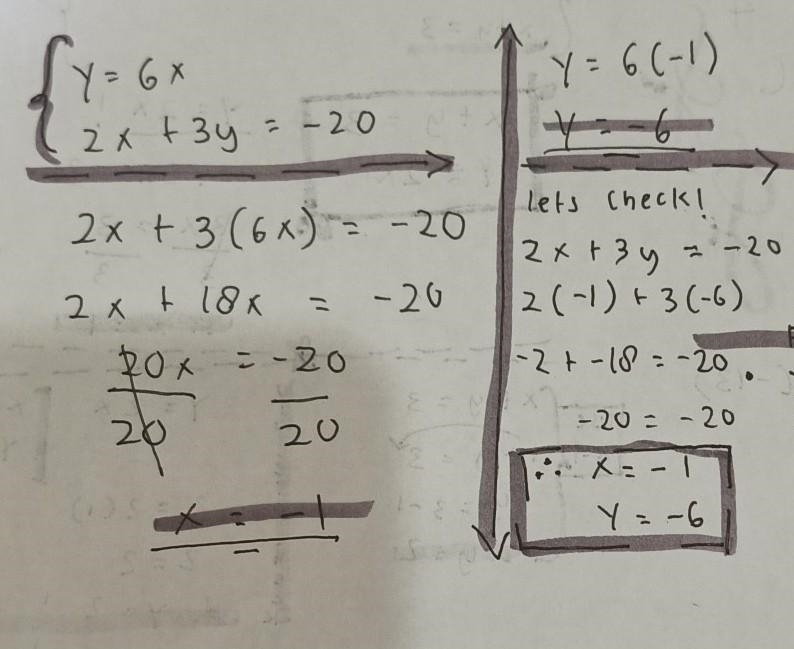 y = 6x
2x + 3y = -20
2x + 3(6x) = -20
2x + 18x = -20
20x = -20
20 20
x = -1
y = 6(-1)
y = -6
lets check!
2x + 3y = -20
2(-1) + 3(-6)
-2 + -18 = -20.
-20 = -20
∴ x = -1
y = -6